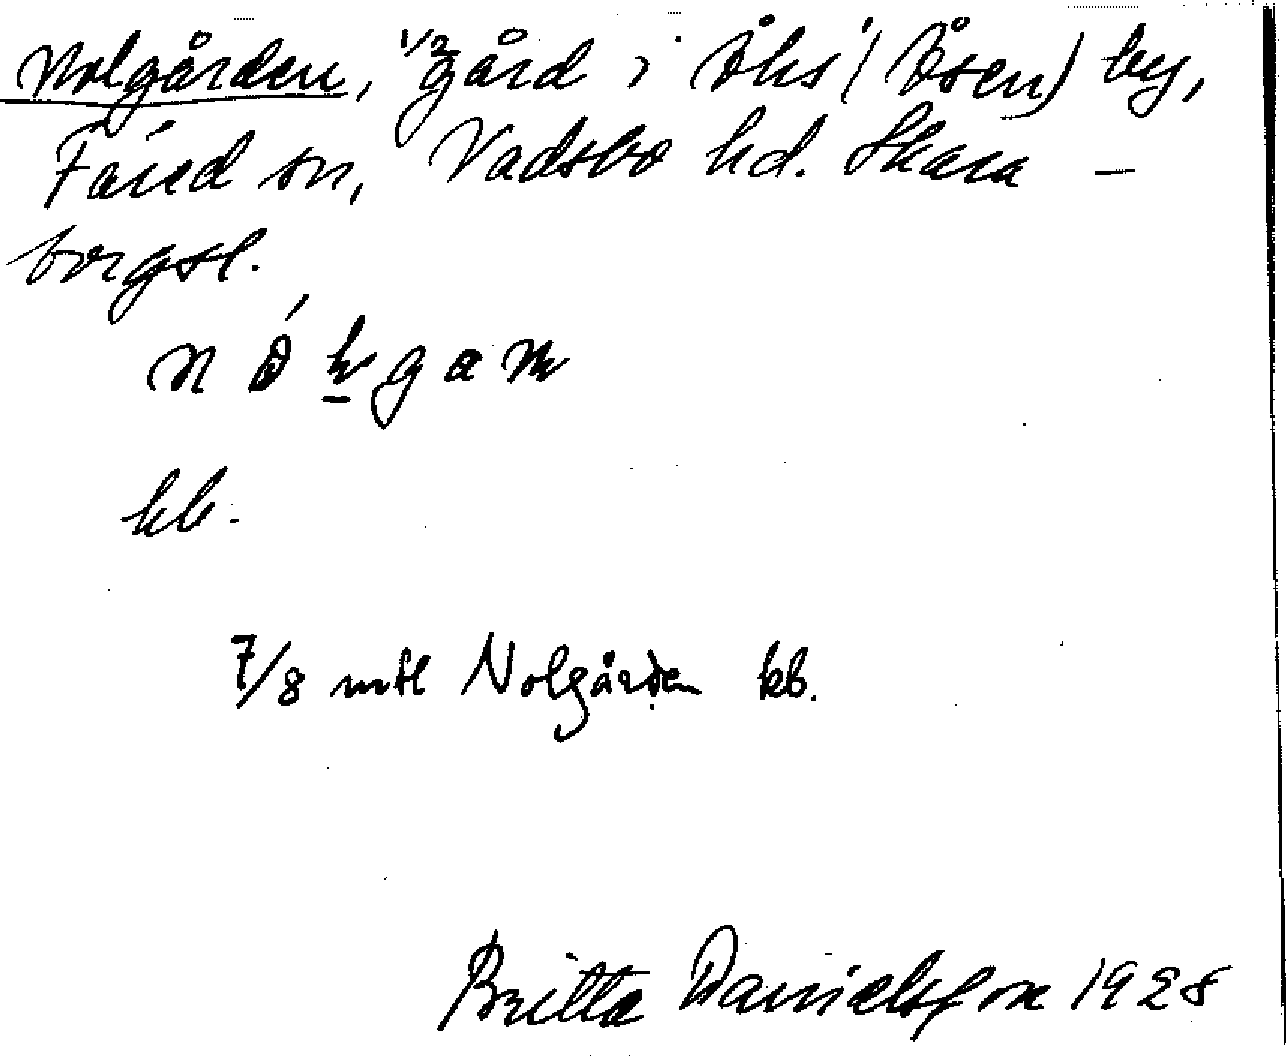 Nolgården, 1/2 gård i Åhs (Åsen) by,
Färed sn, Vadsbo hd. Skara-
borgsl.
kb.
7/8 mtl Nolgården kb.
Britta Danielsson 1928